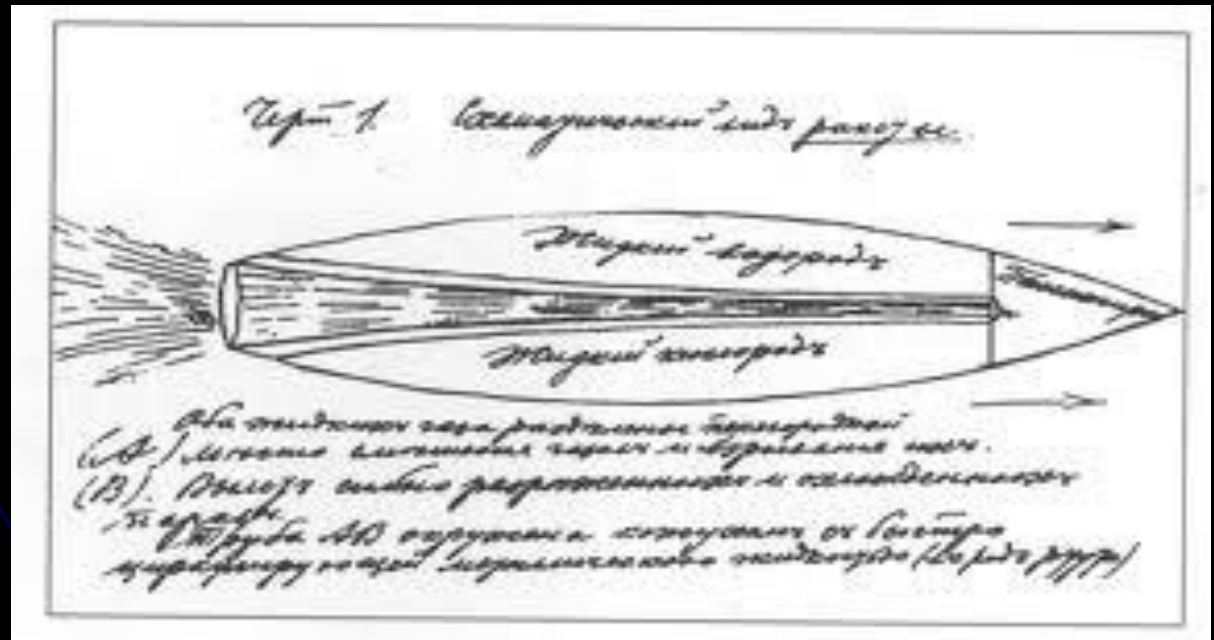 Черт 1. Схематический видъ ракеты.
Жидкий водородъ
Жидкий кислородъ
Оба жидкихъ газа раздѣлены перегородкой
(А) Мѣсто смѣшения газовъ и взрывания ихъ.
(В). Вылетъ сильно разрѣженныхъ и охлажденныхъ
паровъ
Труба АВ окружена кожухомъ съ быстро
циркулирующей металлического жидкостью (